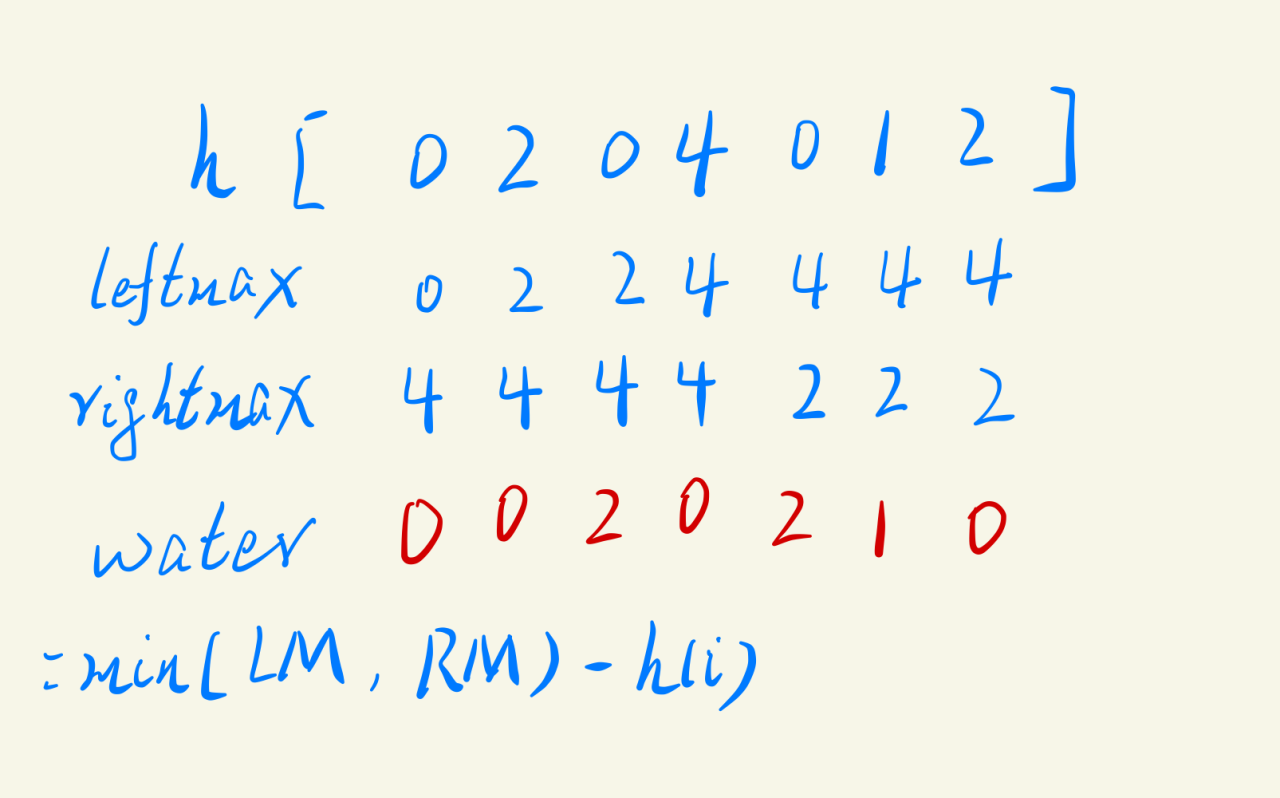 h [ 0 2 0 4 0 1 2 ]
leftmax 0 2 2 4 4 4 4
rightmax 4 4 4 4 2 2 2
water 0 0 2 0 2 1 0
= min( LM, RM) - h(i)